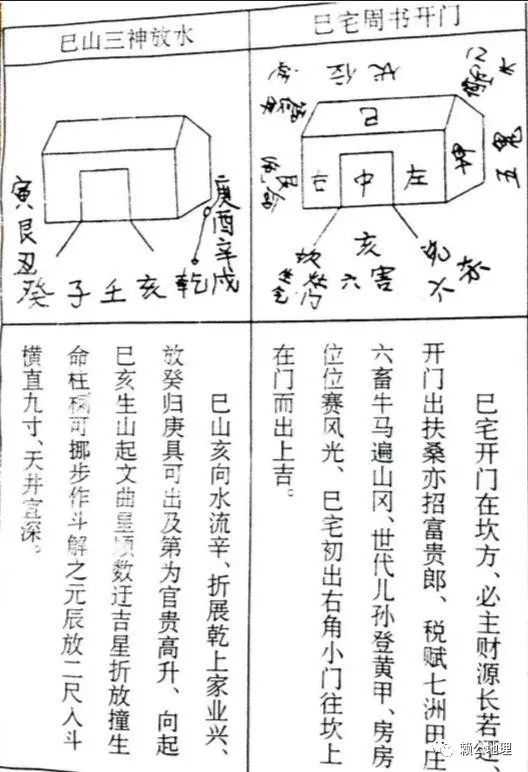 巳宅周书开门
伏位
巳
水
五鬼
右
中
左
坎
亥
六害
巳宅开门在坎方、必主财源长若逆、
开门出扶桑亦招富贵郎、税赋七洲田庄
六畜牛马遍山冈、世代儿孙登黄甲、房房
位位赛风光、巳宅初出右角小门往坎上
在门而出上吉。
巳山三神放水
寅艮丑
癸子壬亥乾戌
庚酉辛
巳山亥向水流辛、折展乾上家业兴、
放癸归庚具可出及第为官贵高升、向起
巳亥生山起文曲星顺数迂吉星折放撞生
命柱可挪步作斗解之元辰放二尺入斗
横直九寸、天井宜深。
赖公地理